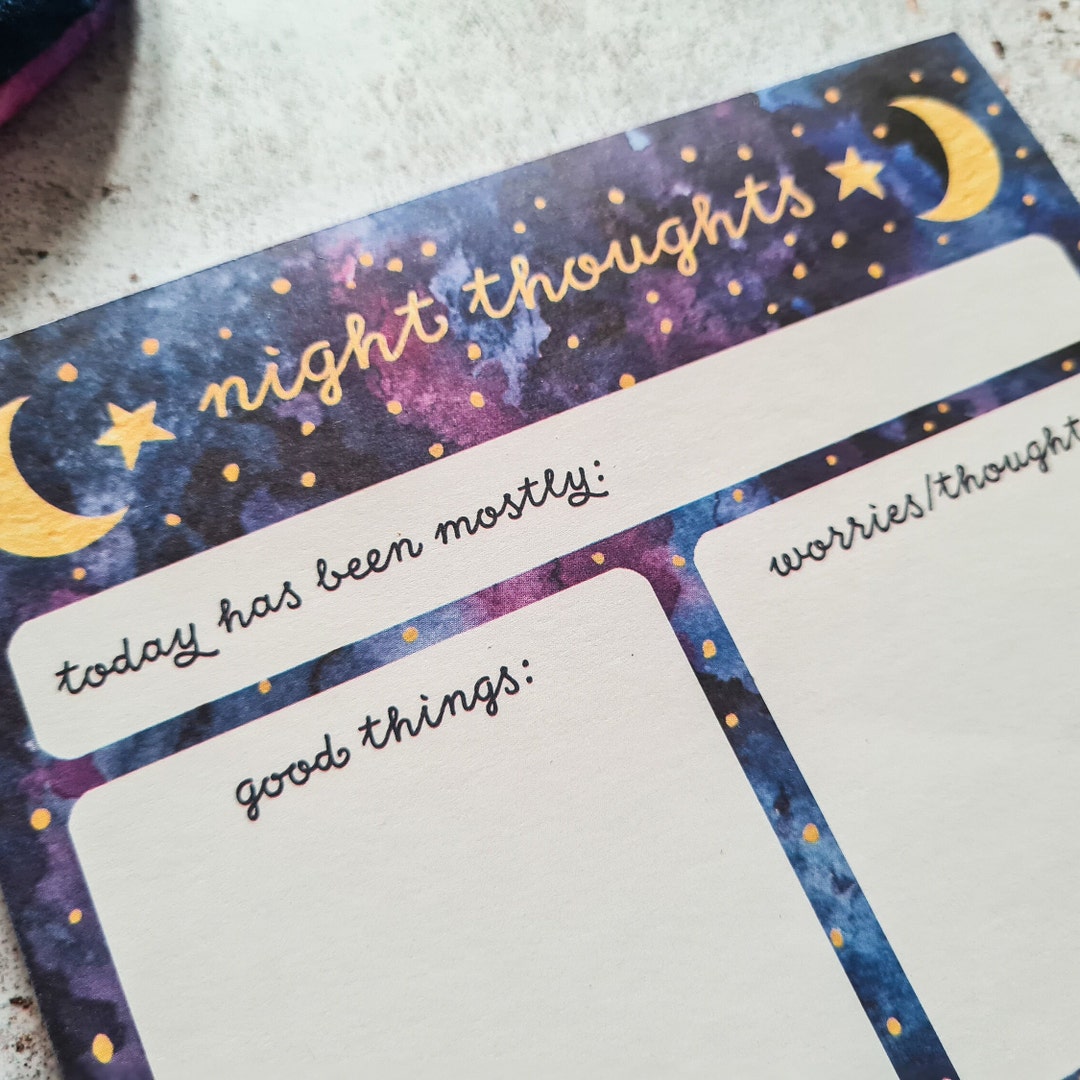 night thoughts
today has been mostly:
good things:
worries/thought